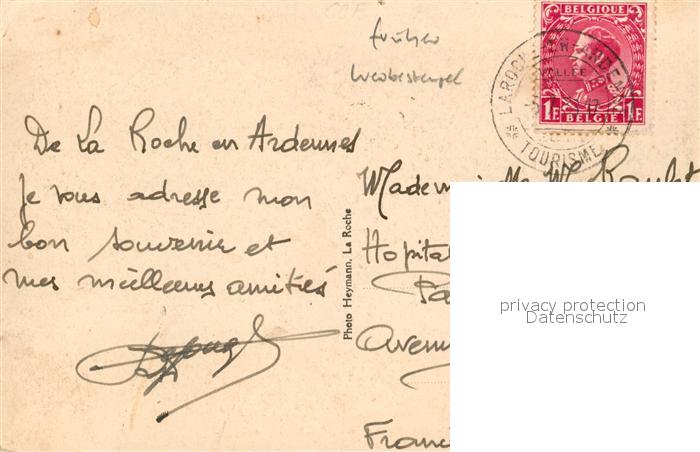 früher
Werbestempel
BELGIQUE
1F 1F
BELGIË
LAROCHE EN ARDENNE
VALLEE
TOURISME
De La Roche en Ardennes
je vous adresse mon
bon souvenir et
mes meilleures amitiés
Photo Heymann, La Roche
Mademoiselle
Hopital
Pa
Avenu
Franc
privacy protection
Datenschutz